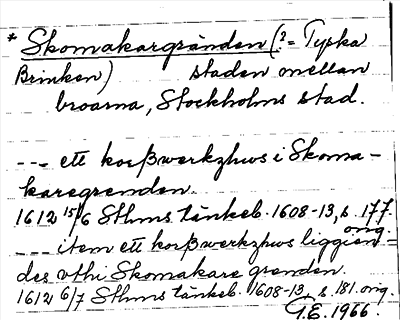 * Skomakargränden (? = Tyska
Brinken) staden mellan
broarna, Stockholms stad.
--- ett korßwerkzhws i Skoma-
karegrenden.
1612 15/6 Sthms tänkeb. 1608-13, s. 177.
orig.
--- item ett korßwerkzhws liggien=
des vthi Skomakare grenden.
1612 6/7 Sthms tänkeb. 1608-13, s. 181. orig.
G.E. 1966.